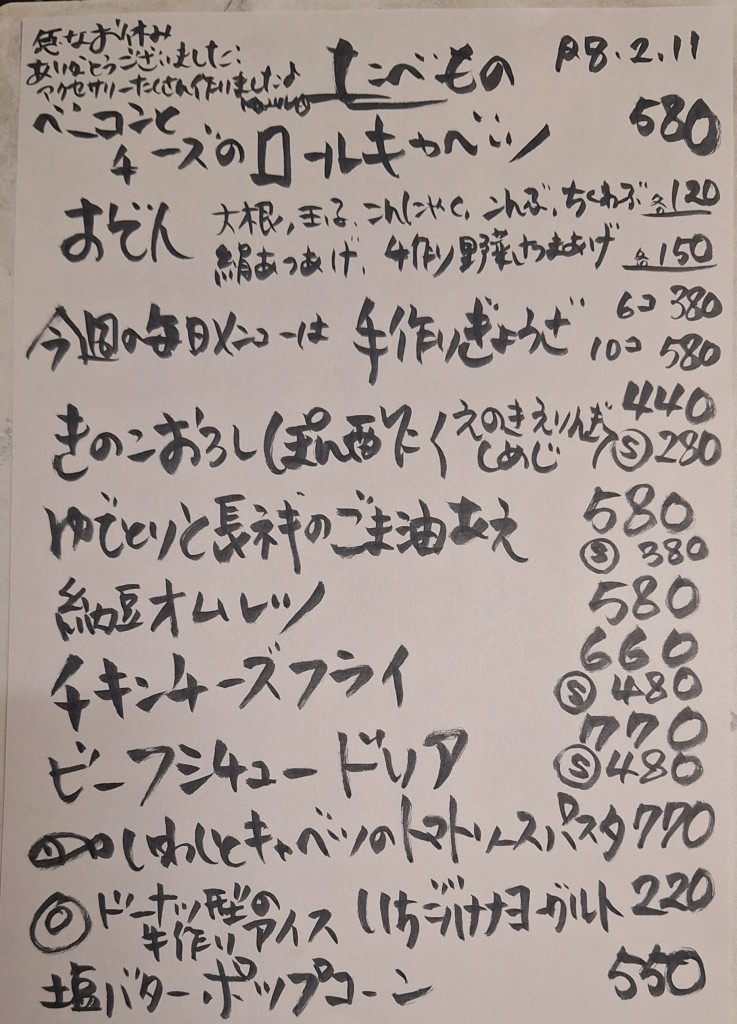 急なお休み
ありがとうございました。
アクセサリーたくさん作りましたよ
たべもの
R8.2.11
ベーコンと
チーズのロールキャベツ 580
おでん 大根,玉子,こんにゃく,こんぶ,ちくわぶ 各120
絹あつあげ,手作り野菜さつまあげ 各150
今週の毎日メニューは 手作りぎょうざ 6コ 380
10コ 580
きのこおろしぽん酢だく えのきえりんぎ 440
しめじ Ⓢ280
ゆでとりと長ネギのごま油あえ 580
Ⓢ 380
納豆オムレツ 580
チキンチーズフライ 660
Ⓢ 480
ビーフシチュードリア 770
Ⓢ480
いわしとキャベツのトマトソースパスタ 770
ドーナッツ型の
手作りアイス いちごバナナヨーグルト 220
塩バターポップコーン 550